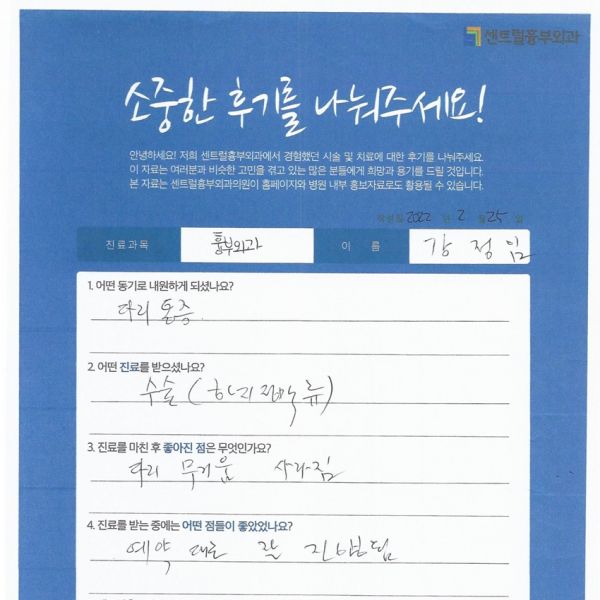 센트럴흉부외과
소중한 후기를 나눠주세요!
안녕하세요! 저희 센트럴흉부외과에서 경험했던 시술 및 치료에 대한 후기를 나눠주세요.
이 자료는 여러분과 비슷한 고민을 겪고 있는 많은 분들에게 희망과 용기를 드릴 것입니다.
본 자료는 센트럴흉부외과의원이 홈페이지와 병원 내부 홍보자료로도 활용될 수 있습니다.
작성일 2022 년 2 월 25 일
진료과목 흉부외과 이 름 강정임
1. 어떤 동기로 내원하게 되셨나요?
다리 통증.
2. 어떤 진료를 받으셨나요?
수술 (하지정맥류)
3. 진료를 마친 후 좋아진 점은 무엇인가요?
다리 무거움 사라짐
4. 진료를 받는 중에는 어떤 점들이 좋았었나요?
예약 대로 잘 진행됨